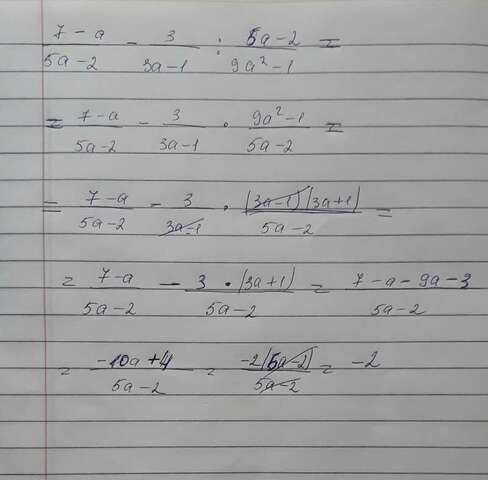 (7 - a)/(5a - 2) - 3/(3a - 1) : (5a - 2)/(9a² - 1) =
= (7 - a)/(5a - 2) - 3/(3a - 1) · (9a² - 1)/(5a - 2) =
= (7 - a)/(5a - 2) - 3/(3a - 1) · (3a - 1)(3a + 1)/(5a - 2) =
= (7 - a)/(5a - 2) - 3 · (3a + 1)/(5a - 2) = (7 - a - 9a - 3)/(5a - 2)
= (-10a + 4)/(5a - 2) = -2(5a - 2)/(5a - 2) = -2